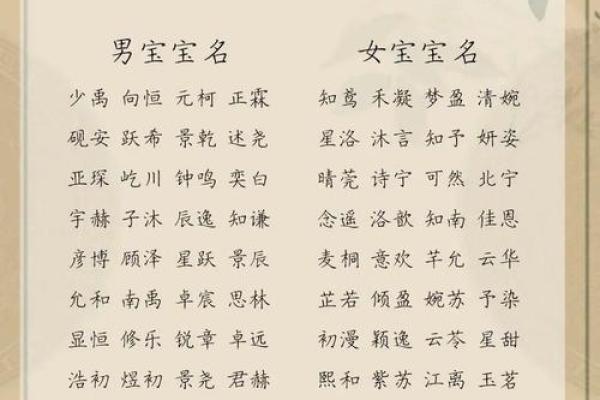 男宝宝名 女宝宝名
少禹 向恒 元柯 正霖 知鸢 禾凝 梦盈 清婉
砚安 跃希 景乾 述尧 星洛 沐言 知予 妍姿
亚琛 屹川 钟鸣 奕白 晴莞 诗宁 可然 北宁
宇赫 子沐 辰逸 知谦 念遥 洛歆 知南 佳恩
彦博 顾泽 星跃 景辰 麦桐 意欢 芊允 云华
允和 南禹 卓宸 思林 芷若 倾盈 婉苏 予染
显恒 修乐 锐章 卓远 初漫 颖逸 云苓 星甜
浩初 煜初 景尧 君赫 熙和 紫苏 江离 玉茗